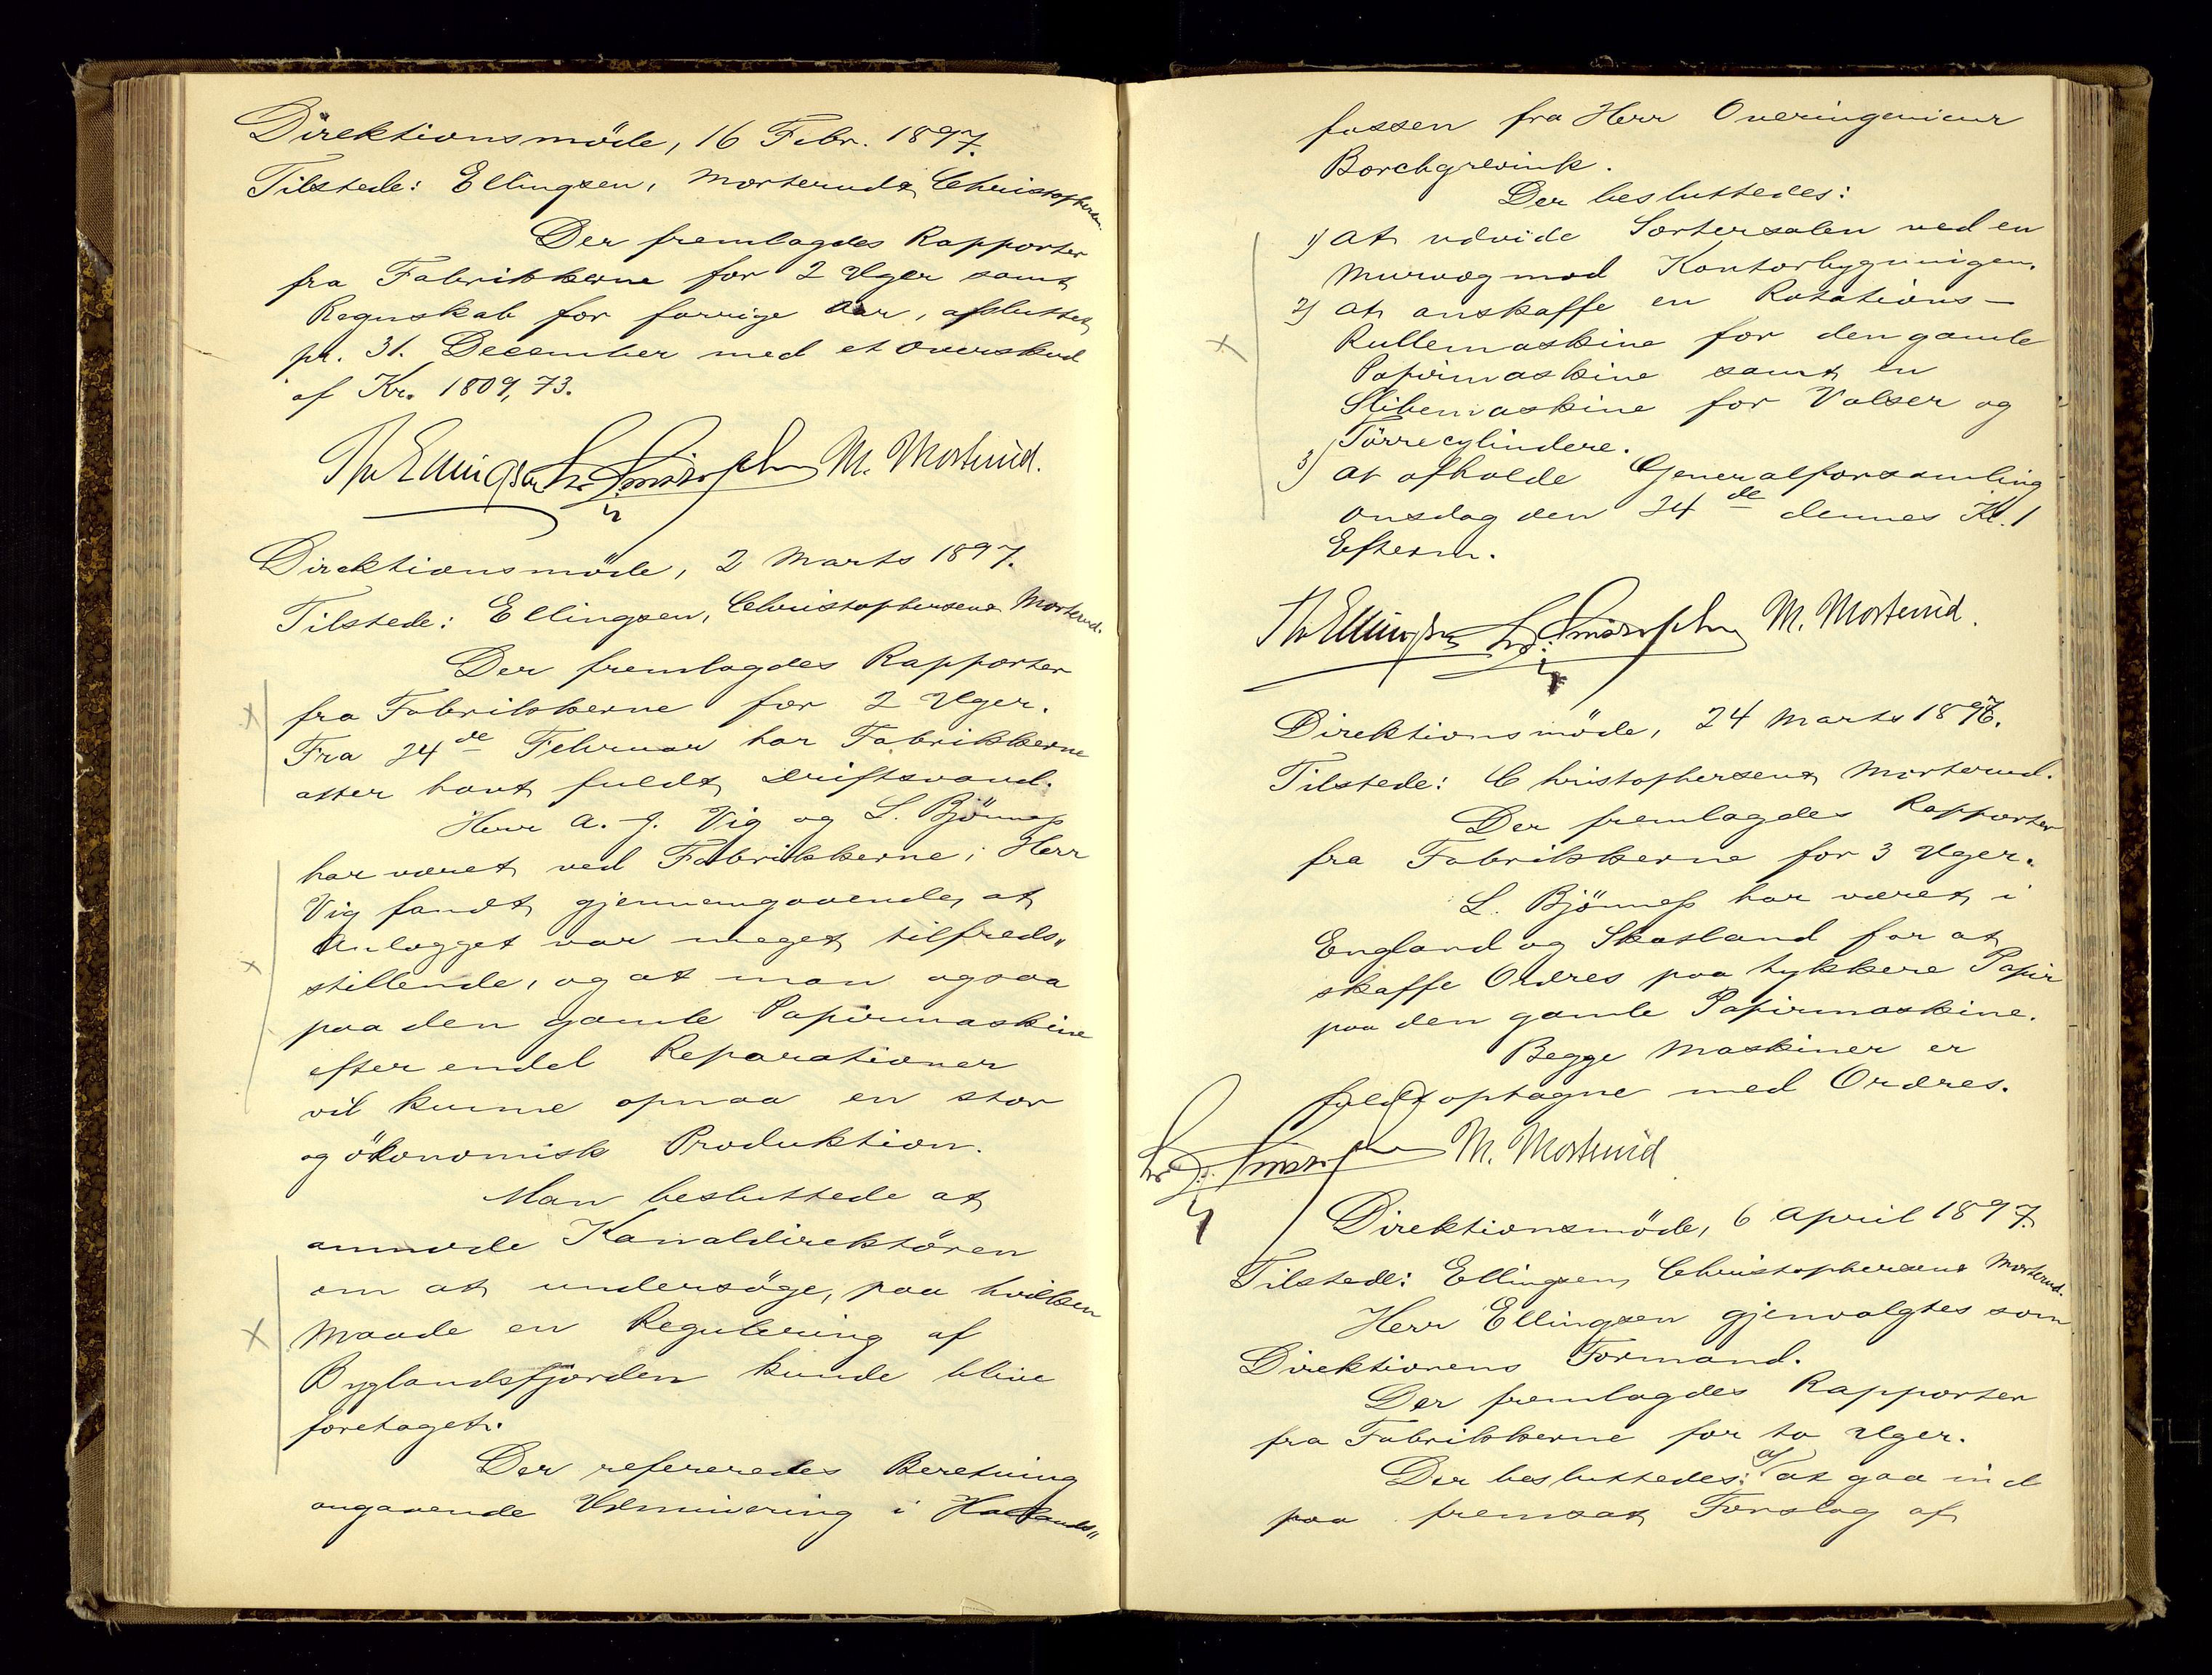 Direktionsmöde, 16 Febr. 1897.
Tilstede: Ellingsen, Mosterud & Christophersen.
Der fremlagdes Rapporter
fra Fabrikkerne for 2 Uger samt
Regnskab for forrige Aar, afsluttet
pr. 31. December med et Overskud
af Kr. 1809,73.
Th Ellingsen M. Mosterud.
Direktionsmöde, 2 Marts 1897.
Tilstede: Ellingsen, Christophersen & Mosterud.
Der fremlagdes Rapporter
fra Fabrikkerne for 2 Uger.
Fra 24de Februar har Fabrikkerne
atter havt fuldt Driftsvand.
Herr A. J. Vig og L. Bjönness
har været ved Fabrikkerne; Herr
Vig fandt gjennemgaaende, at
Anlægget var meget tilfreds"
stillende, og at man ogsaa
paa den gamle Papirmaskine
efter endel Reparationer
vil kunne opnaa en stor
og ökonomisk Produktion.
Man besluttede at
anmode Kanaldirektören
om at undersöge, paa hvilken
Maade en Regulering af
Byglandsfjorden kunde blive
foretaget.
Der refereredes Beretning
angaaende Udminering i
fossen fra Herr Overingenieur
Borchgrevink.
Der besluttedes:
1) at udvide Sortersalen ved en
Murvæg mod Kontorbygningen.
2) at anskaffe en Rotations-
Rullemaskine for den gamle
Papirmaskine samt en
Slibemaskine for Valser og
Törrecylindere.
3) at afholde Generalforsamling
Onsdag den 24de dennes Kl. 1
Efterm.
Th Ellingsen M. Mosterud.
Direktionsmöde, 24 Marts 1897.
Tilstede: Christophersen & Mosterud.
Der fremlagdes Rapporter
fra Fabrikkerne for 3 Uger.
L. Bjönness har været i
England og Skotland for at
skaffe Ordres paa tykkere Papir
paa den gamle Papirmaskine.
Begge Maskiner er
fuldt optagne med Ordres.
M. Mosterud
Direktionsmöde, 6 April 1897.
Tilstede: Ellingsen, Christophersen & Mosterud.
Herr Ellingsen gjenvalgtes som
Direktionens Formand.
Der fremlagdes Rapporter
fra Fabrikkerne for to Uger.
Der besluttedes: a) at gaa ind
paa fremsat Forslag af